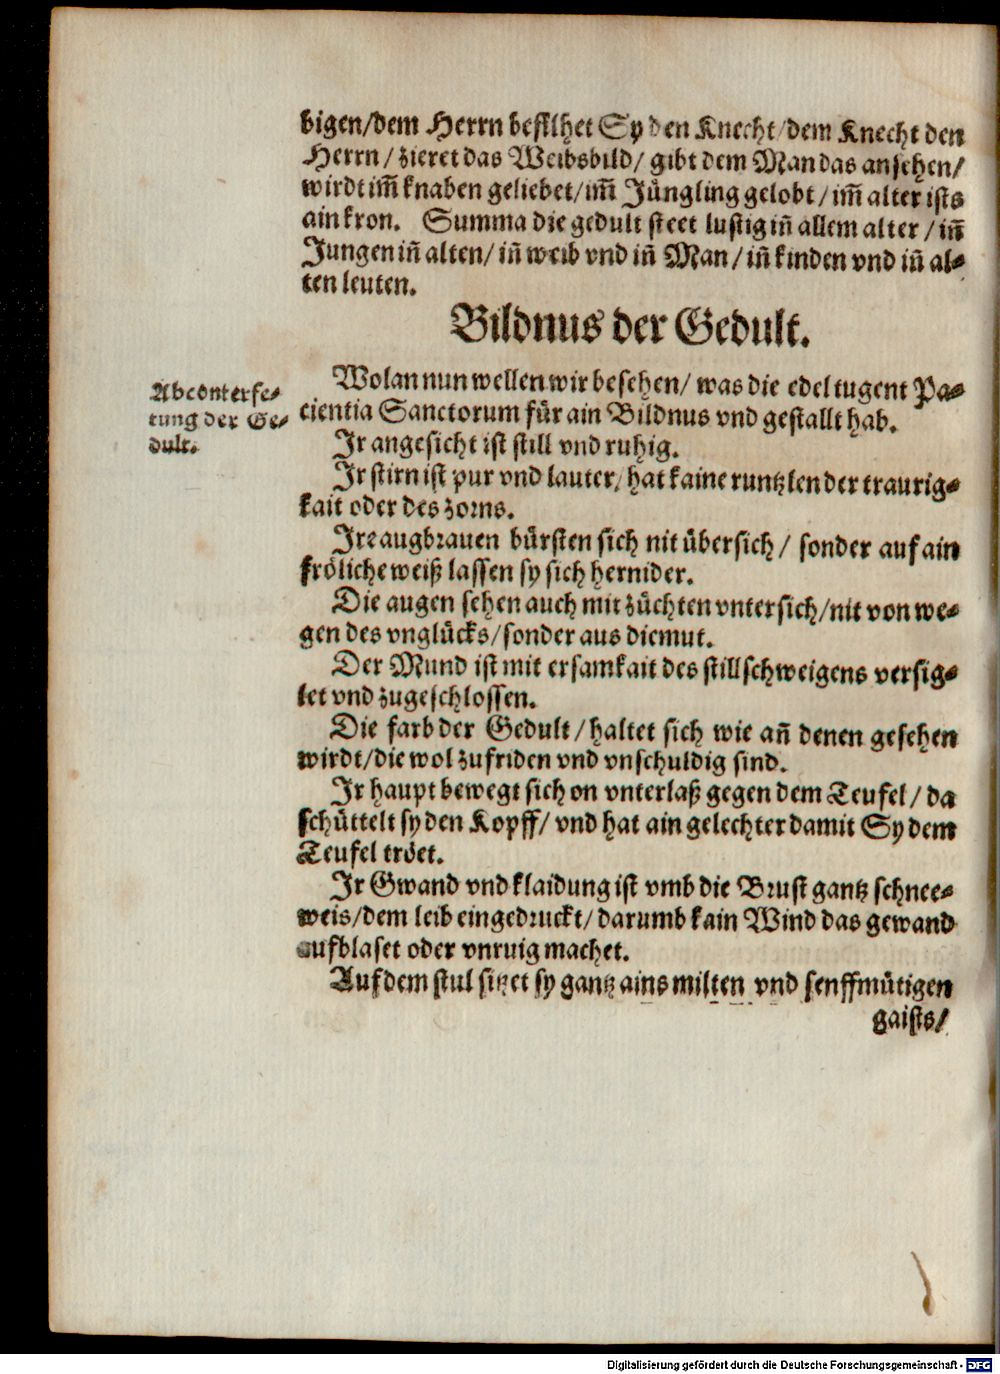 bigen/dem Herrn befilhet Sy den Knecht/dem Knecht den
Herrn/zieret das Weibsbild/gibt dem Man das ansehen/
wirdt im̃ knaben geliebet/im̃ Jüngling gelobt/im̃ alter ists
ain kron. Summa die gedult steet lustig iñ allem alter/iñ
Jungen iñ alten/iñ weib vnd iñ Man/iñ kinden vnd iñ al⸗
ten leuten.
Bildnus der Gedult.
Abconterfe⸗
tung der Ge⸗
dult.
Wolan nun wellen wir besehen/was die edel tugent Pa⸗
cientia Sanctorum für ain Bildnus vnd gestallt hab.
Jr angesicht ist still vnd ruhig.
Jr stirn ist pur vnd lauter/hat kaine runtzlen der traurig⸗
kait oder des zorns.
Jre augbrauen bürsten sich nit übersich/sonder auf ain
fröliche weiß lassen sy sich hernider.
Die augen sehen auch mit züchten vntersich/nit von we⸗
gen des vnglücks/sonder aus diemut.
Der Mund ist mit ersamkait des stillschweigens versig⸗
let vnd zugeschlossen.
Die farb der Gedult/haltet sich wie añ denen gesehen
wirdt/die wol zufriden vnd vnschuldig sind.
Jr haupt bewegt sich on vnterlaß gegen dem Teufel/da
schüttelt sy den Kopff/vnd hat ain gelechter damit Sy dem
Teufel tröet.
Jr Gwand vnd klaidung ist vmb die Brust gantz schnee⸗
weis/dem leib eingedruckt/darumb kain Wind das gewand
aufblaset oder vnruig machet.
Auf dem stul sitzet sy gantz ains milten vnd senffmütigen
gaists/
Digitalisierung gefördert durch die Deutsche Forschungsgemeinschaft - DFG